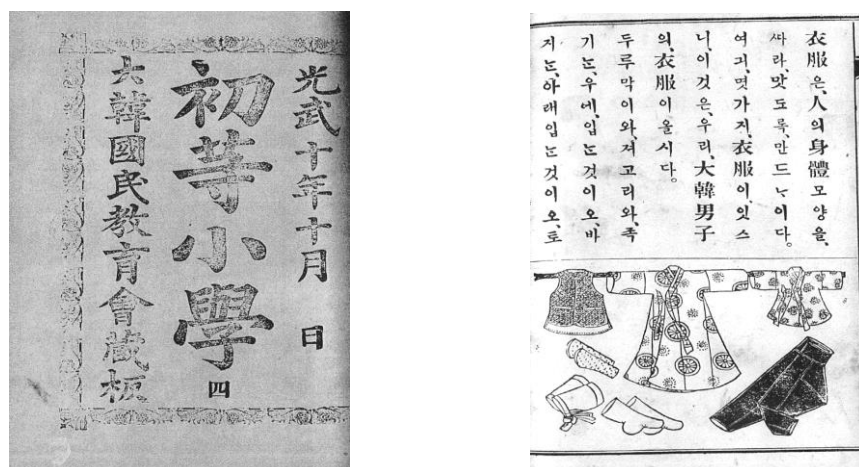 光武十年十月 日
初等小學 四
大韓國民教育會藏板
衣服은、人의身體모양을、
ᄯᅡ라、맛도록、만드ᄂᆞ이다。
여긔、몃가지、衣服이、잇스
니、이것은、우리、大韓男子
의、衣服이올시다。
두루막이와、져고리와、족
기ᄂᆞᆫ、우에、입ᄂᆞᆫ것이오、바
지ᄂᆞᆫ、아래입ᄂᆞᆫ것이오、토